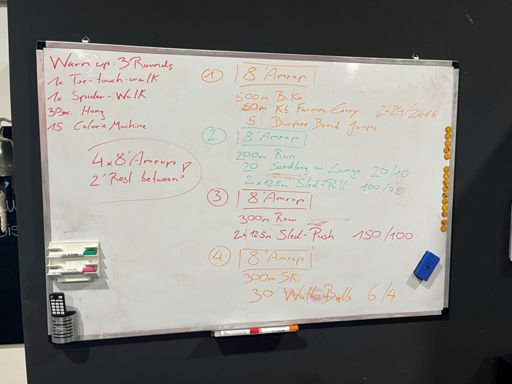 Warm up: 3 Rounds
1x Toe-touch-walk
1x Spider-Walk
30sec Hang
15 Calorie/Machine
4x8' Amrap
2' Rest between
1 8' Amrap
500m Bike
50m Kb Farmer Carry 2x24/2x16
5 Burpee Broad Jumps
2 8' Amrap
200m Run
20 Sandbag w Lunge 20/10
2x12,5m Sled-Pull 100/75
3 8' Amrap
300m Row
2x12,5m Sled-Push 150/100
4 8' Amrap
300m Ski
30 Wall Balls 6/4